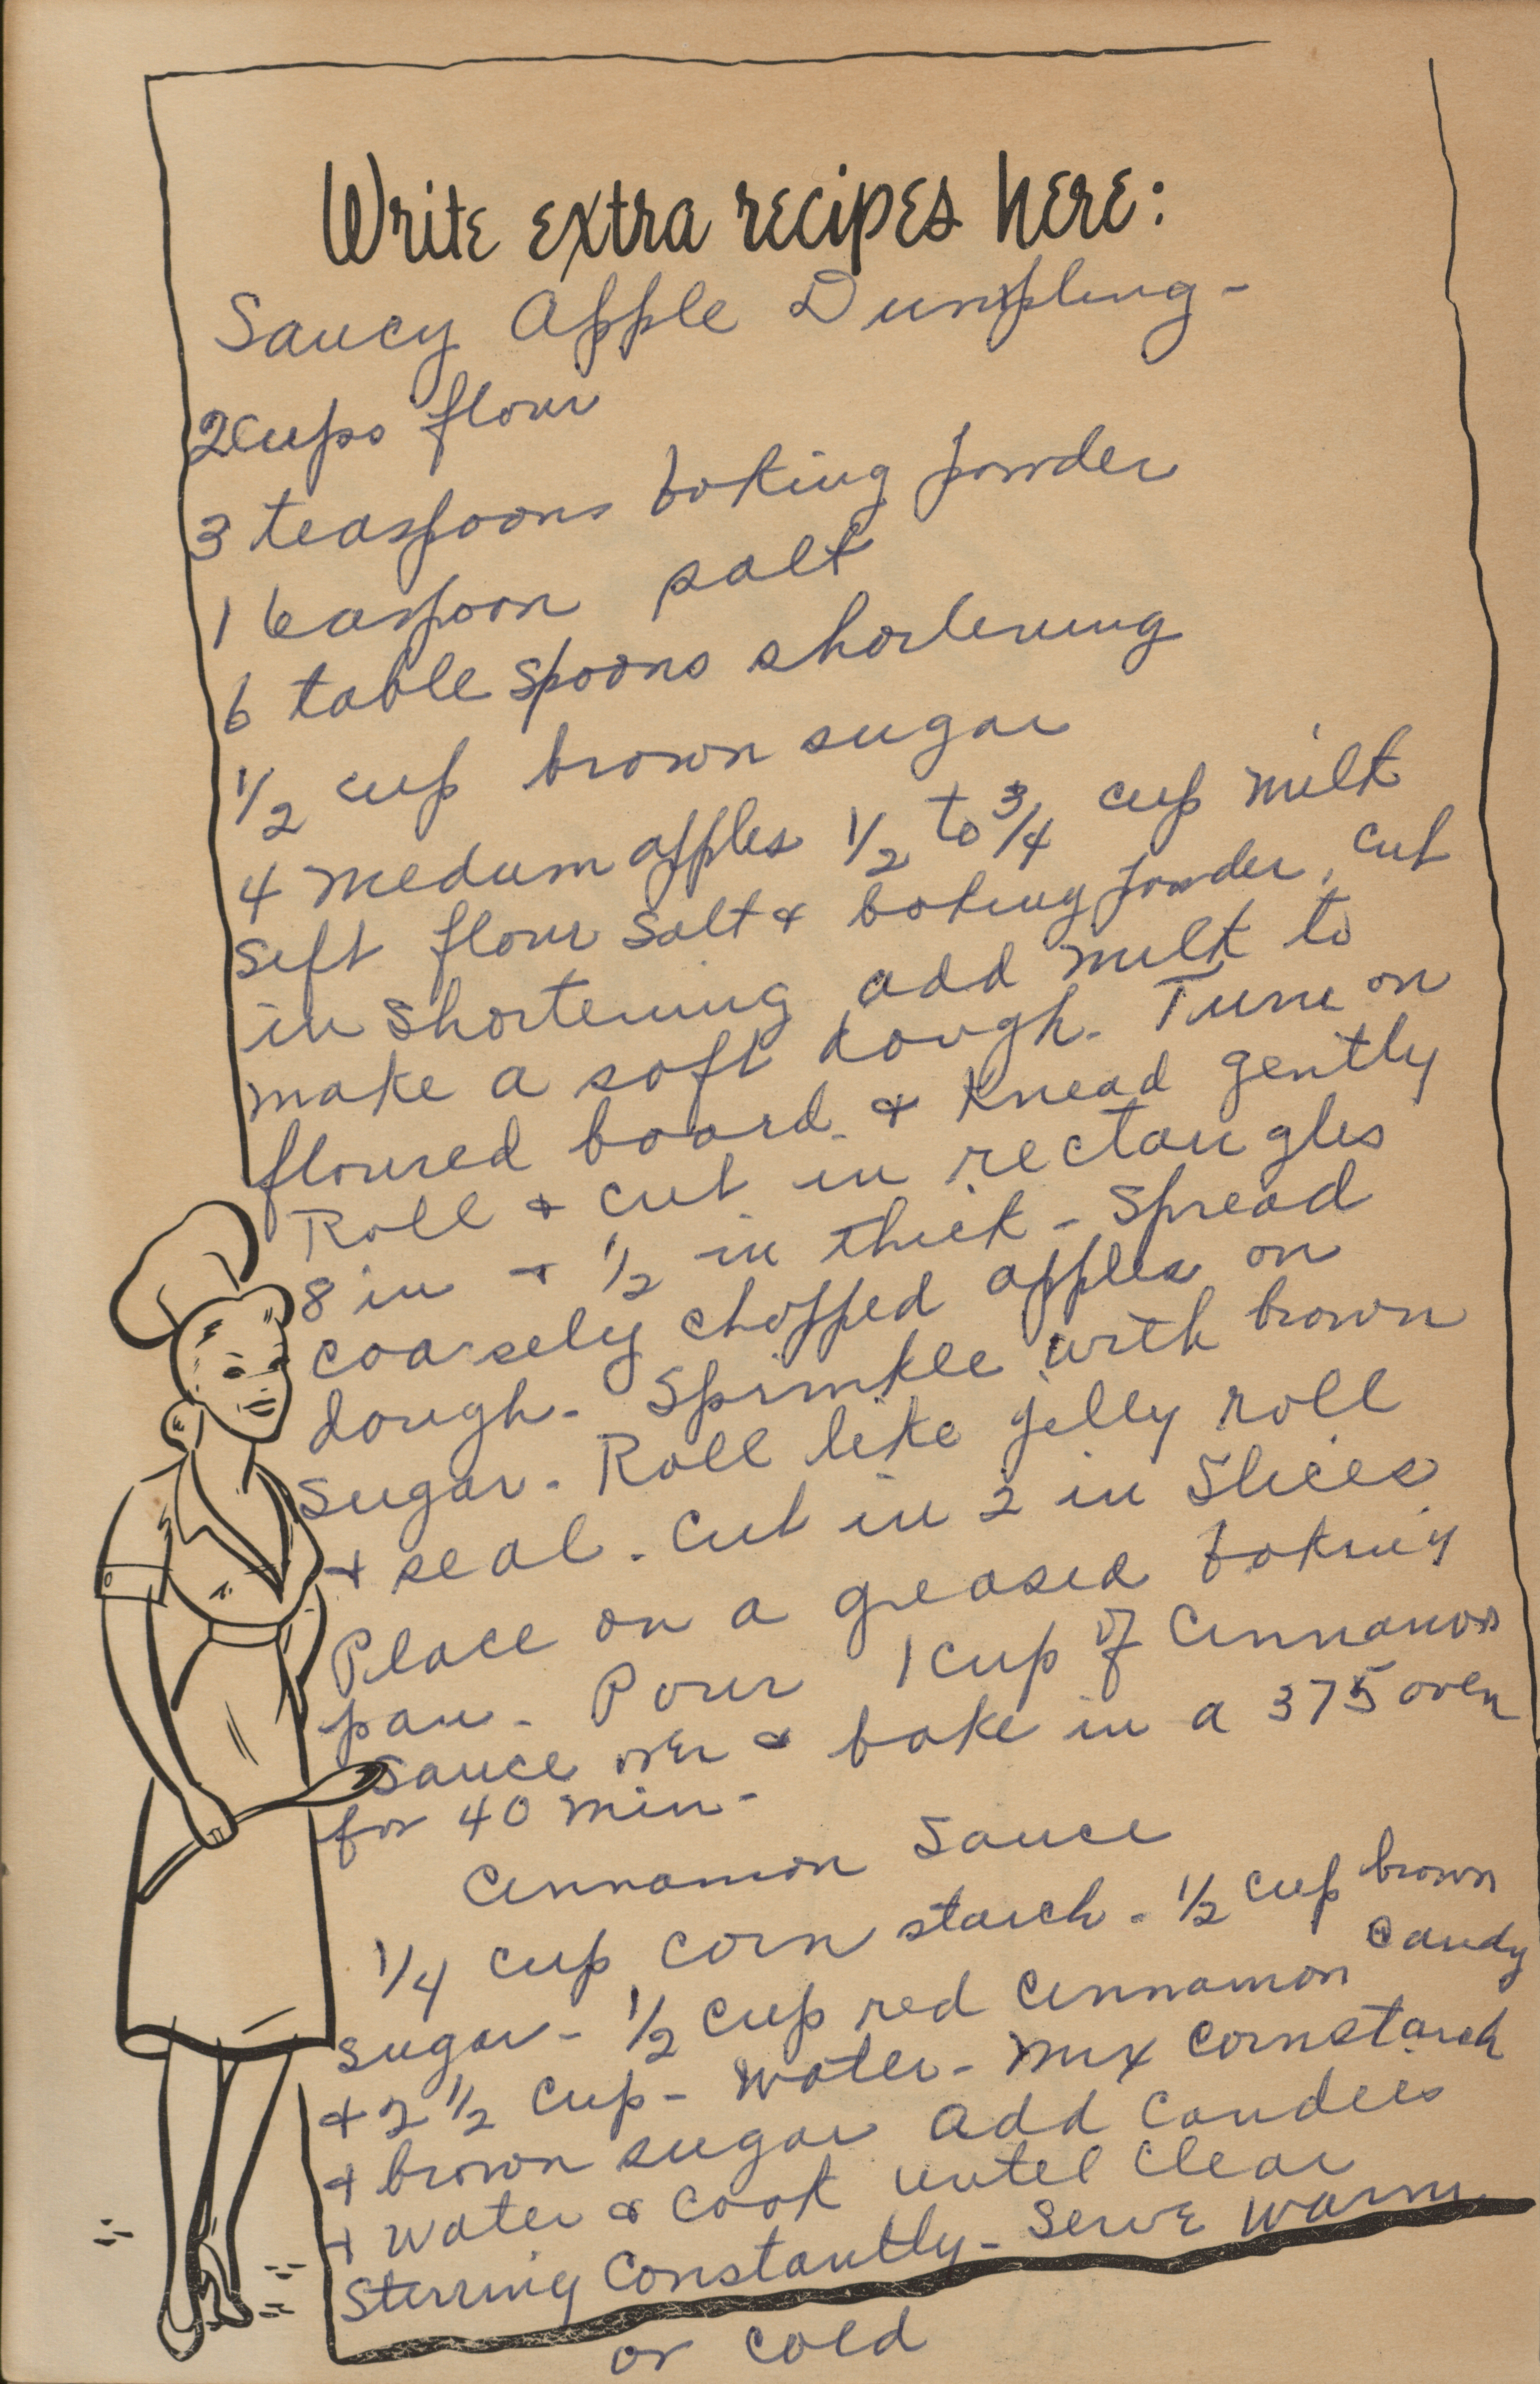 Write extra recipes here:
Saucy Apple Dumpling -
2 cups flour
3 teaspoons baking powder
1 teaspoon salt
6 table spoons shortening
1/2 cup brown sugar
4 medum apples 1/2 to 3/4 cup milk
Sift flour salt & baking powder, cut
in shortening add milk to
make a soft dough. Turn on
floured board. & knead gently
Roll & cut in rectangles
8 in & 1/2 in thick - Spread
coarsely chopped apples on
dough - Sprinkle with brown
sugar - Roll like jelly roll
& seal. Cut in 2 in Slices
Place on a greased baking
pan - Pour 1 cup of Cinnamon
Sauce over & bake in a 375 oven
for 40 min -
Cinnamon Sauce
1/4 cup corn starch - 1/2 cup brown
sugar - 1/2 cup red cinnamon candy
& 2 1/2 cup - water - mix cornstarch
& brown sugar add candies
& water & cook until clear
Stirring Constantly - Serve warm
or cold